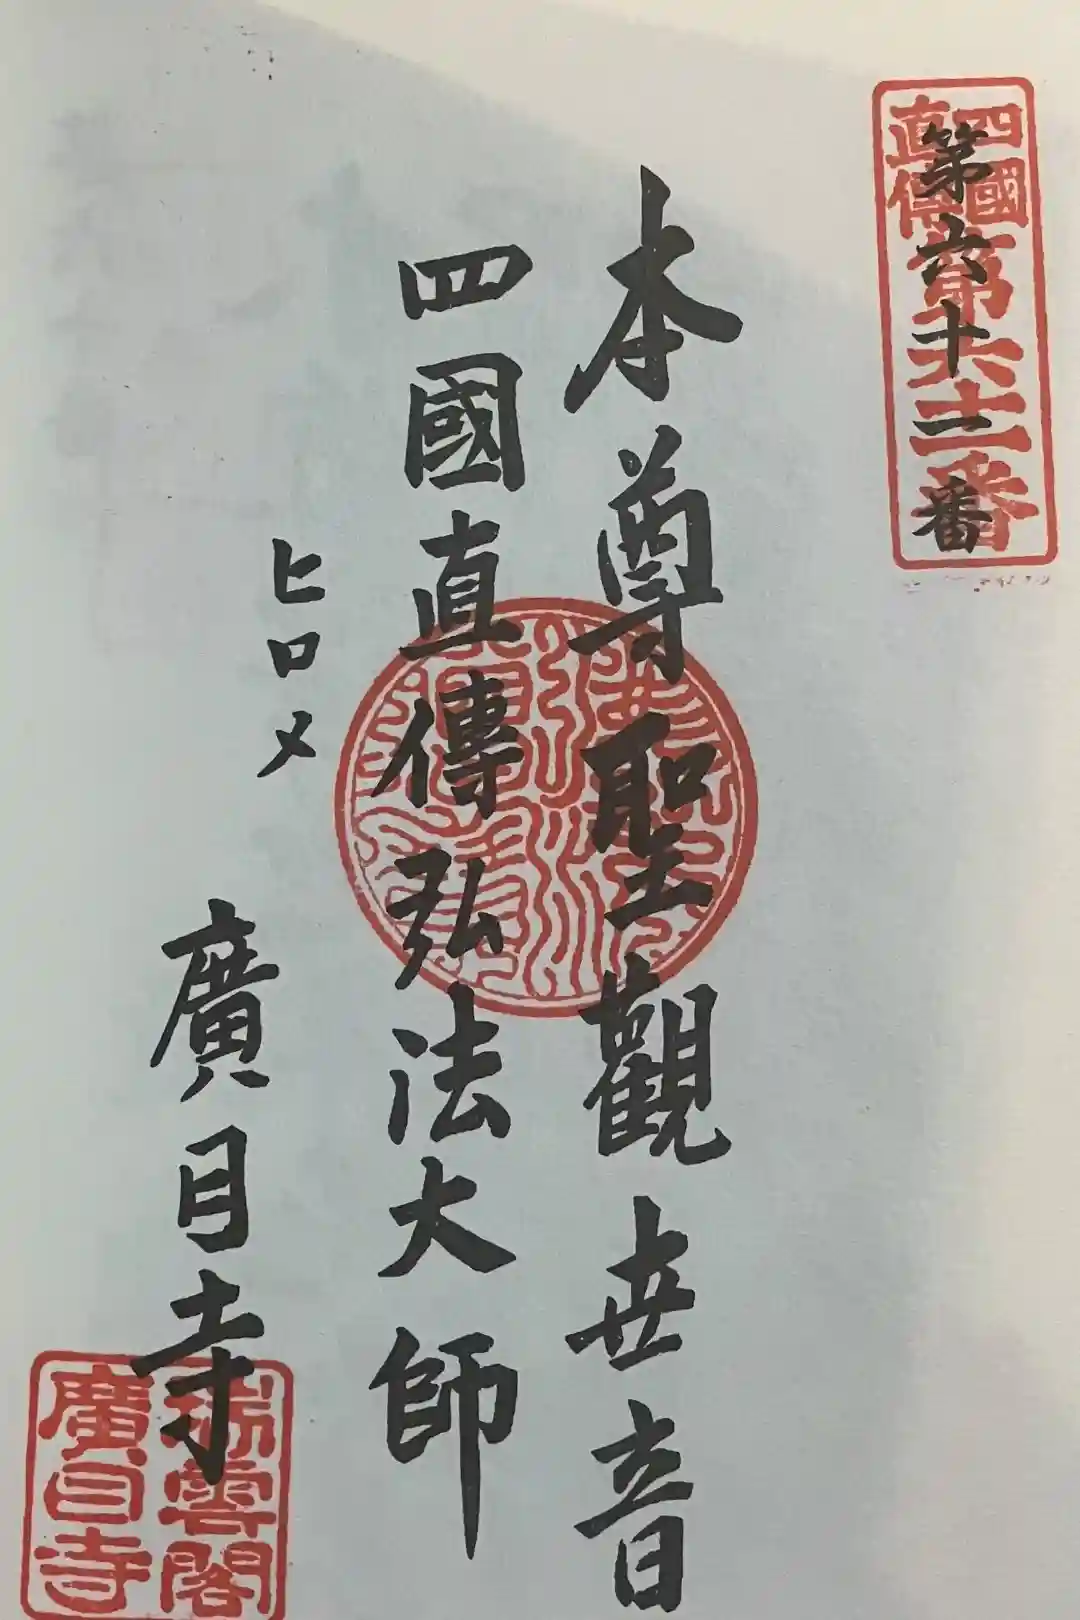 四國
直傳
第六十一番
第六十一番
本尊聖觀世音
四國直傳弘法大師
ヒロメ
廣目寺
瑞雲閣
廣目寺